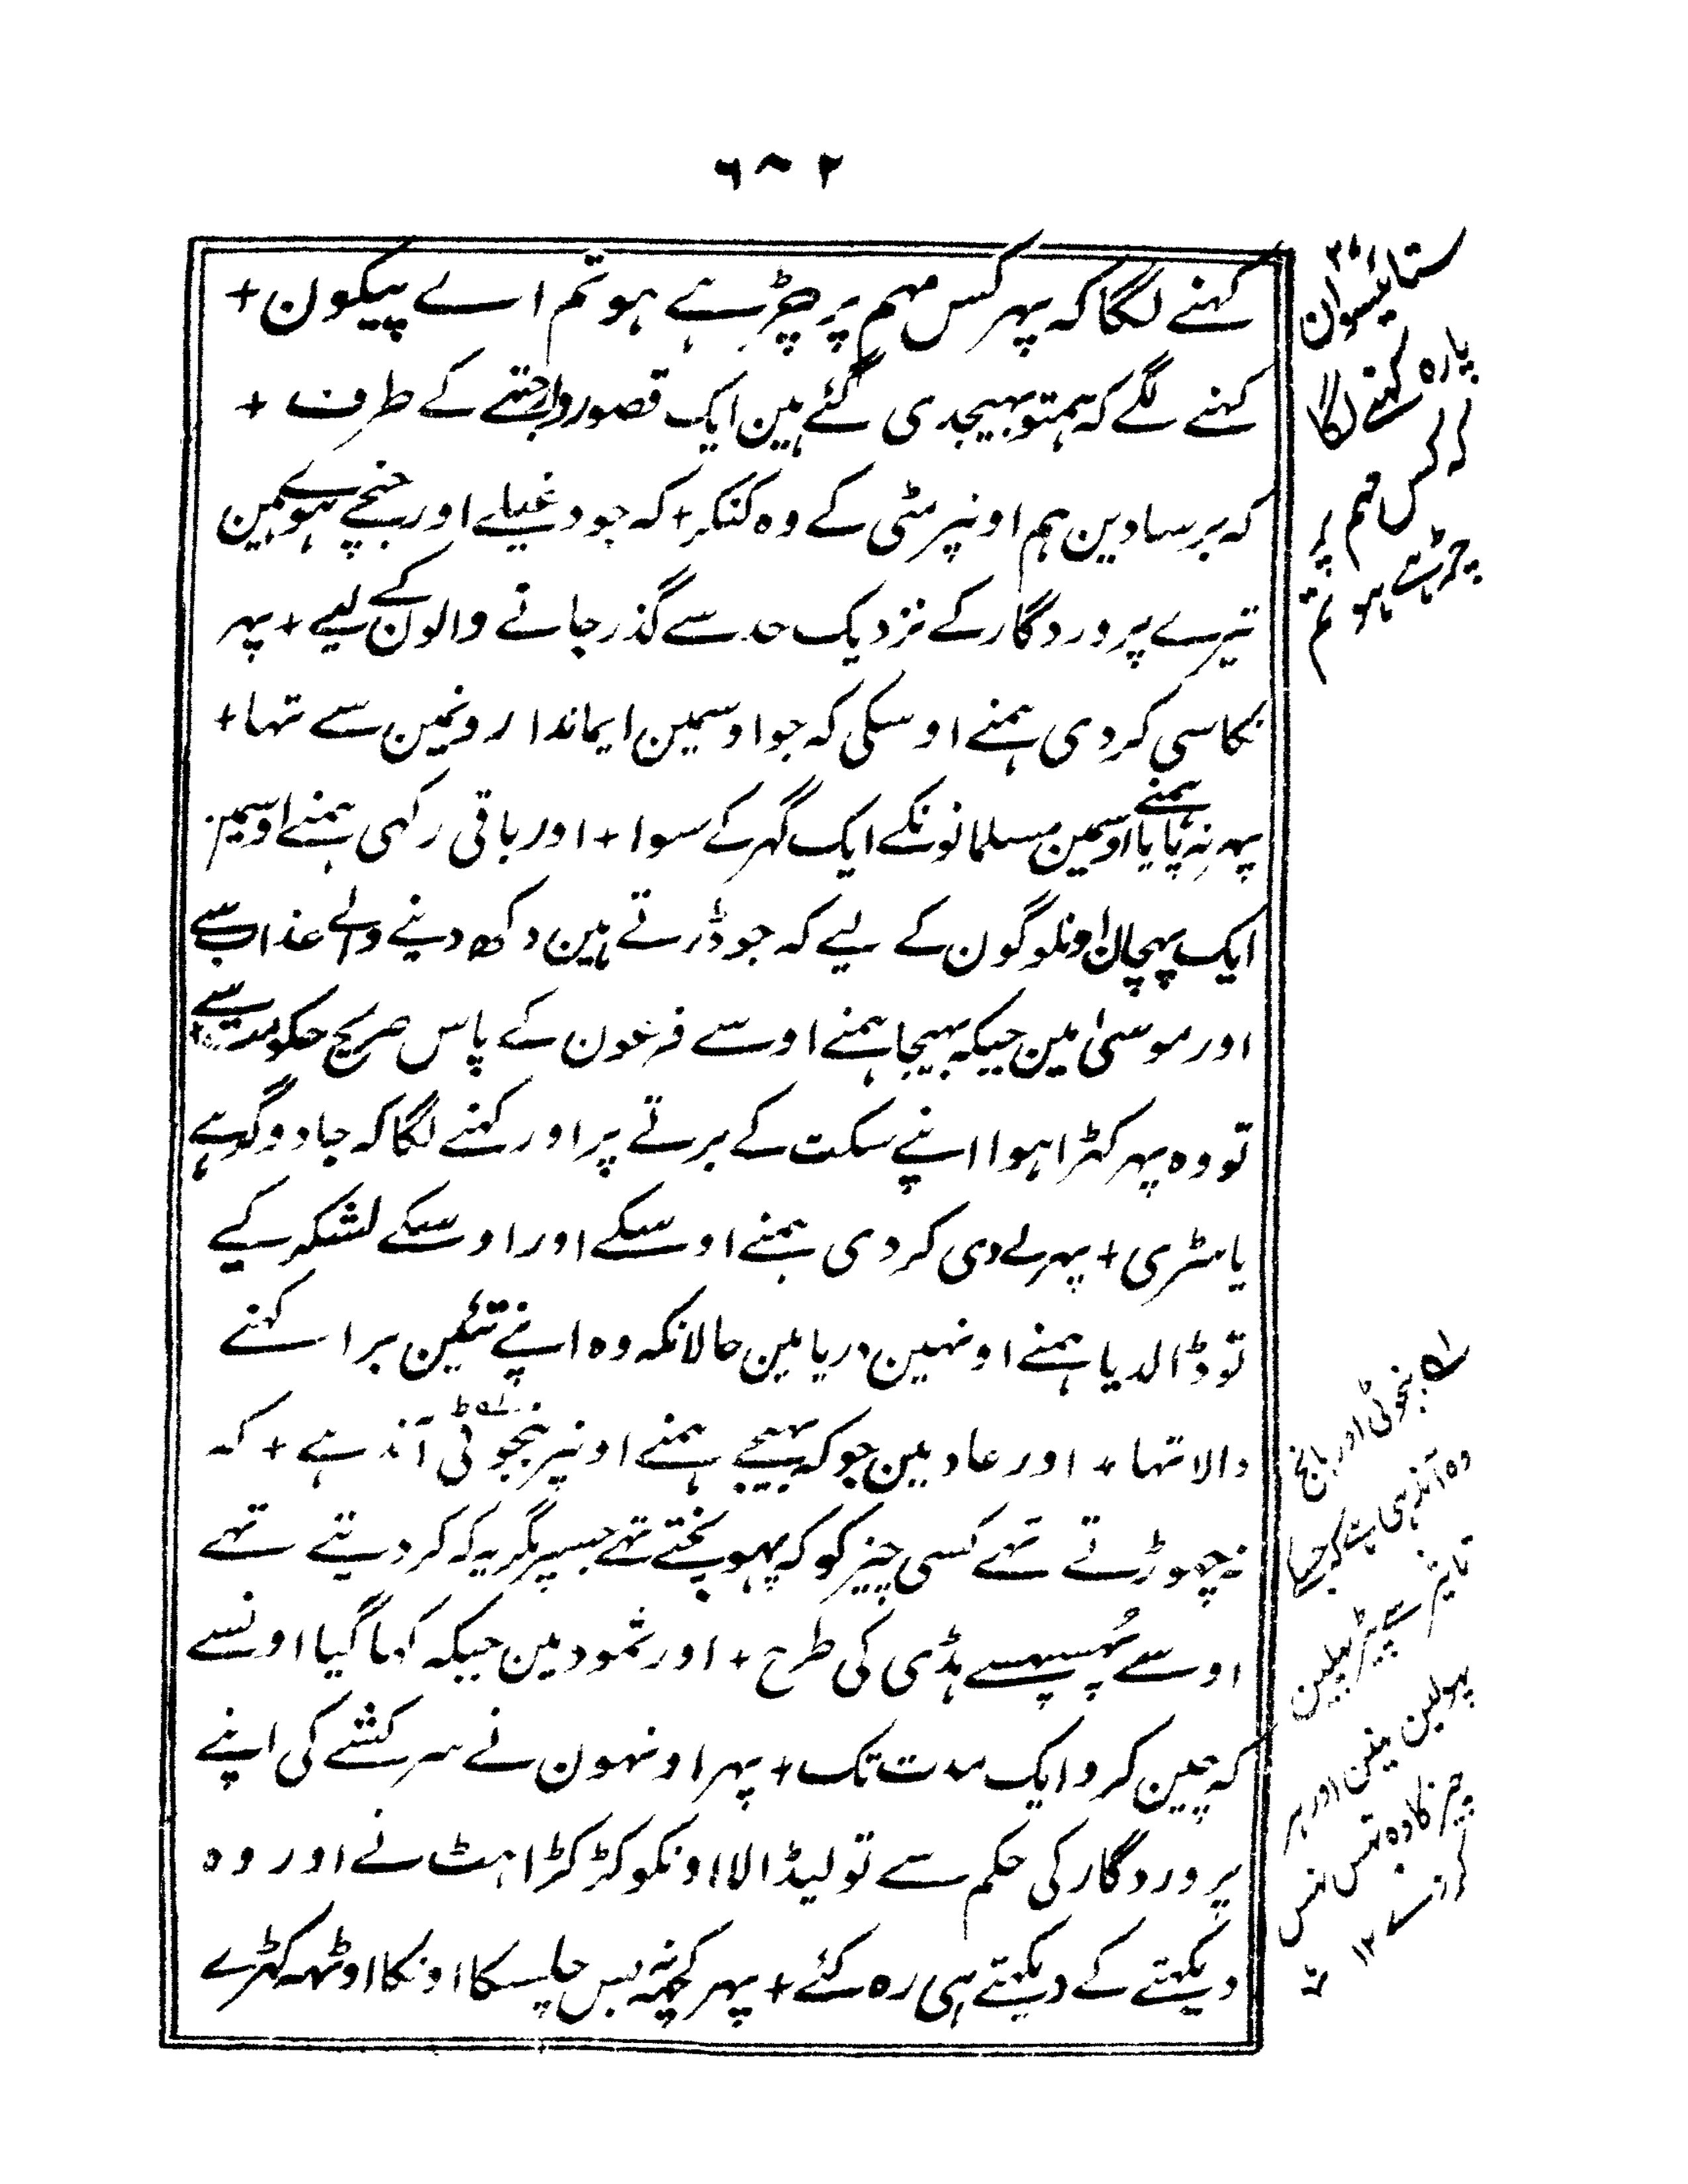 ۶۰۲
کہنے لگا کہ پہر کس مہم پر چڑہے ہو تم اے پیکون +
کہنے لگے کہ ہمتو بہیجدی گئے ہین ایک قصوروار جتے کے طرف +
کہ برسادین ہم اونپر مٹی کے وہ کنکر + کہ جو دغیلے اور خنچے ہوے ہین
تیرے پروردگار کے نزدیک حد سے گذر جانے والون کے لیے + پہر
نکاسی کردی ہمنے اوسکی کہ جو اوسمین ایماندارونمین سے تہا +
پہر نہ پایا ہمنے اوسمین مسلمانونکے ایک گہر کے سوا + اور باقی رکہی ہمنے اوسمین
ایک پہچان اونلوگون کے لیے کہ جو ڈرتے ہین دکھ دینے والے عذاب سے
اور موسیٰ مین جبکہ بہیجا ہمنے اوسے فرعون کے پاس صریح حکومت سے +
تو وہ پہر کہڑا ہوا اپنے سکت کے برتے پر اور کہنے لگا کہ جادوگر ہے
یا سڑی + پہر لے دی کردی ہمنے اوسکے اور اوسکے لشکر کیے
تو ڈالدیا ہمنے اونہین دریا مین حالانکہ وہ اپنے تئین برا کہنے
والا تہا + اور عاد مین جو کہ بہیجے ہمنے اونپر بنجوٹی آندہے + کہ
نہ چھوڑتے تہے کسی چیز کو کہ پہونچتے تہے جسپر مگر یہ کہ کر دیتے تہے
اوسے پُہسپہسے ہڈی کی طرح + اور ثمود مین جبکہ کہا گیا اونسے
کہ چین کرو ایک مدت تک + پہر اونہون نے سرکشے کی اپنے
پروردگار کی حکم سے تو لیڈالا اونکو کڑکڑاہٹ نے اور وہ
دیکہتے کے دیکہتے ہی رہ گئے + پہر کچہ نہ بس چلسکا اونکا اوٹہہ کہڑے
ستائیسوان
پارہ کہنے لگا
کہ کس مہم پر
چڑہے ہو تم
بنجوٹی اور بانج
وہ آندہی ہے کہ جسکا
تاثیر سے پیڑ بیلین
پہولین نہین اور ہر
چیز کا وہ تہس نہس
کر دے ۱۲